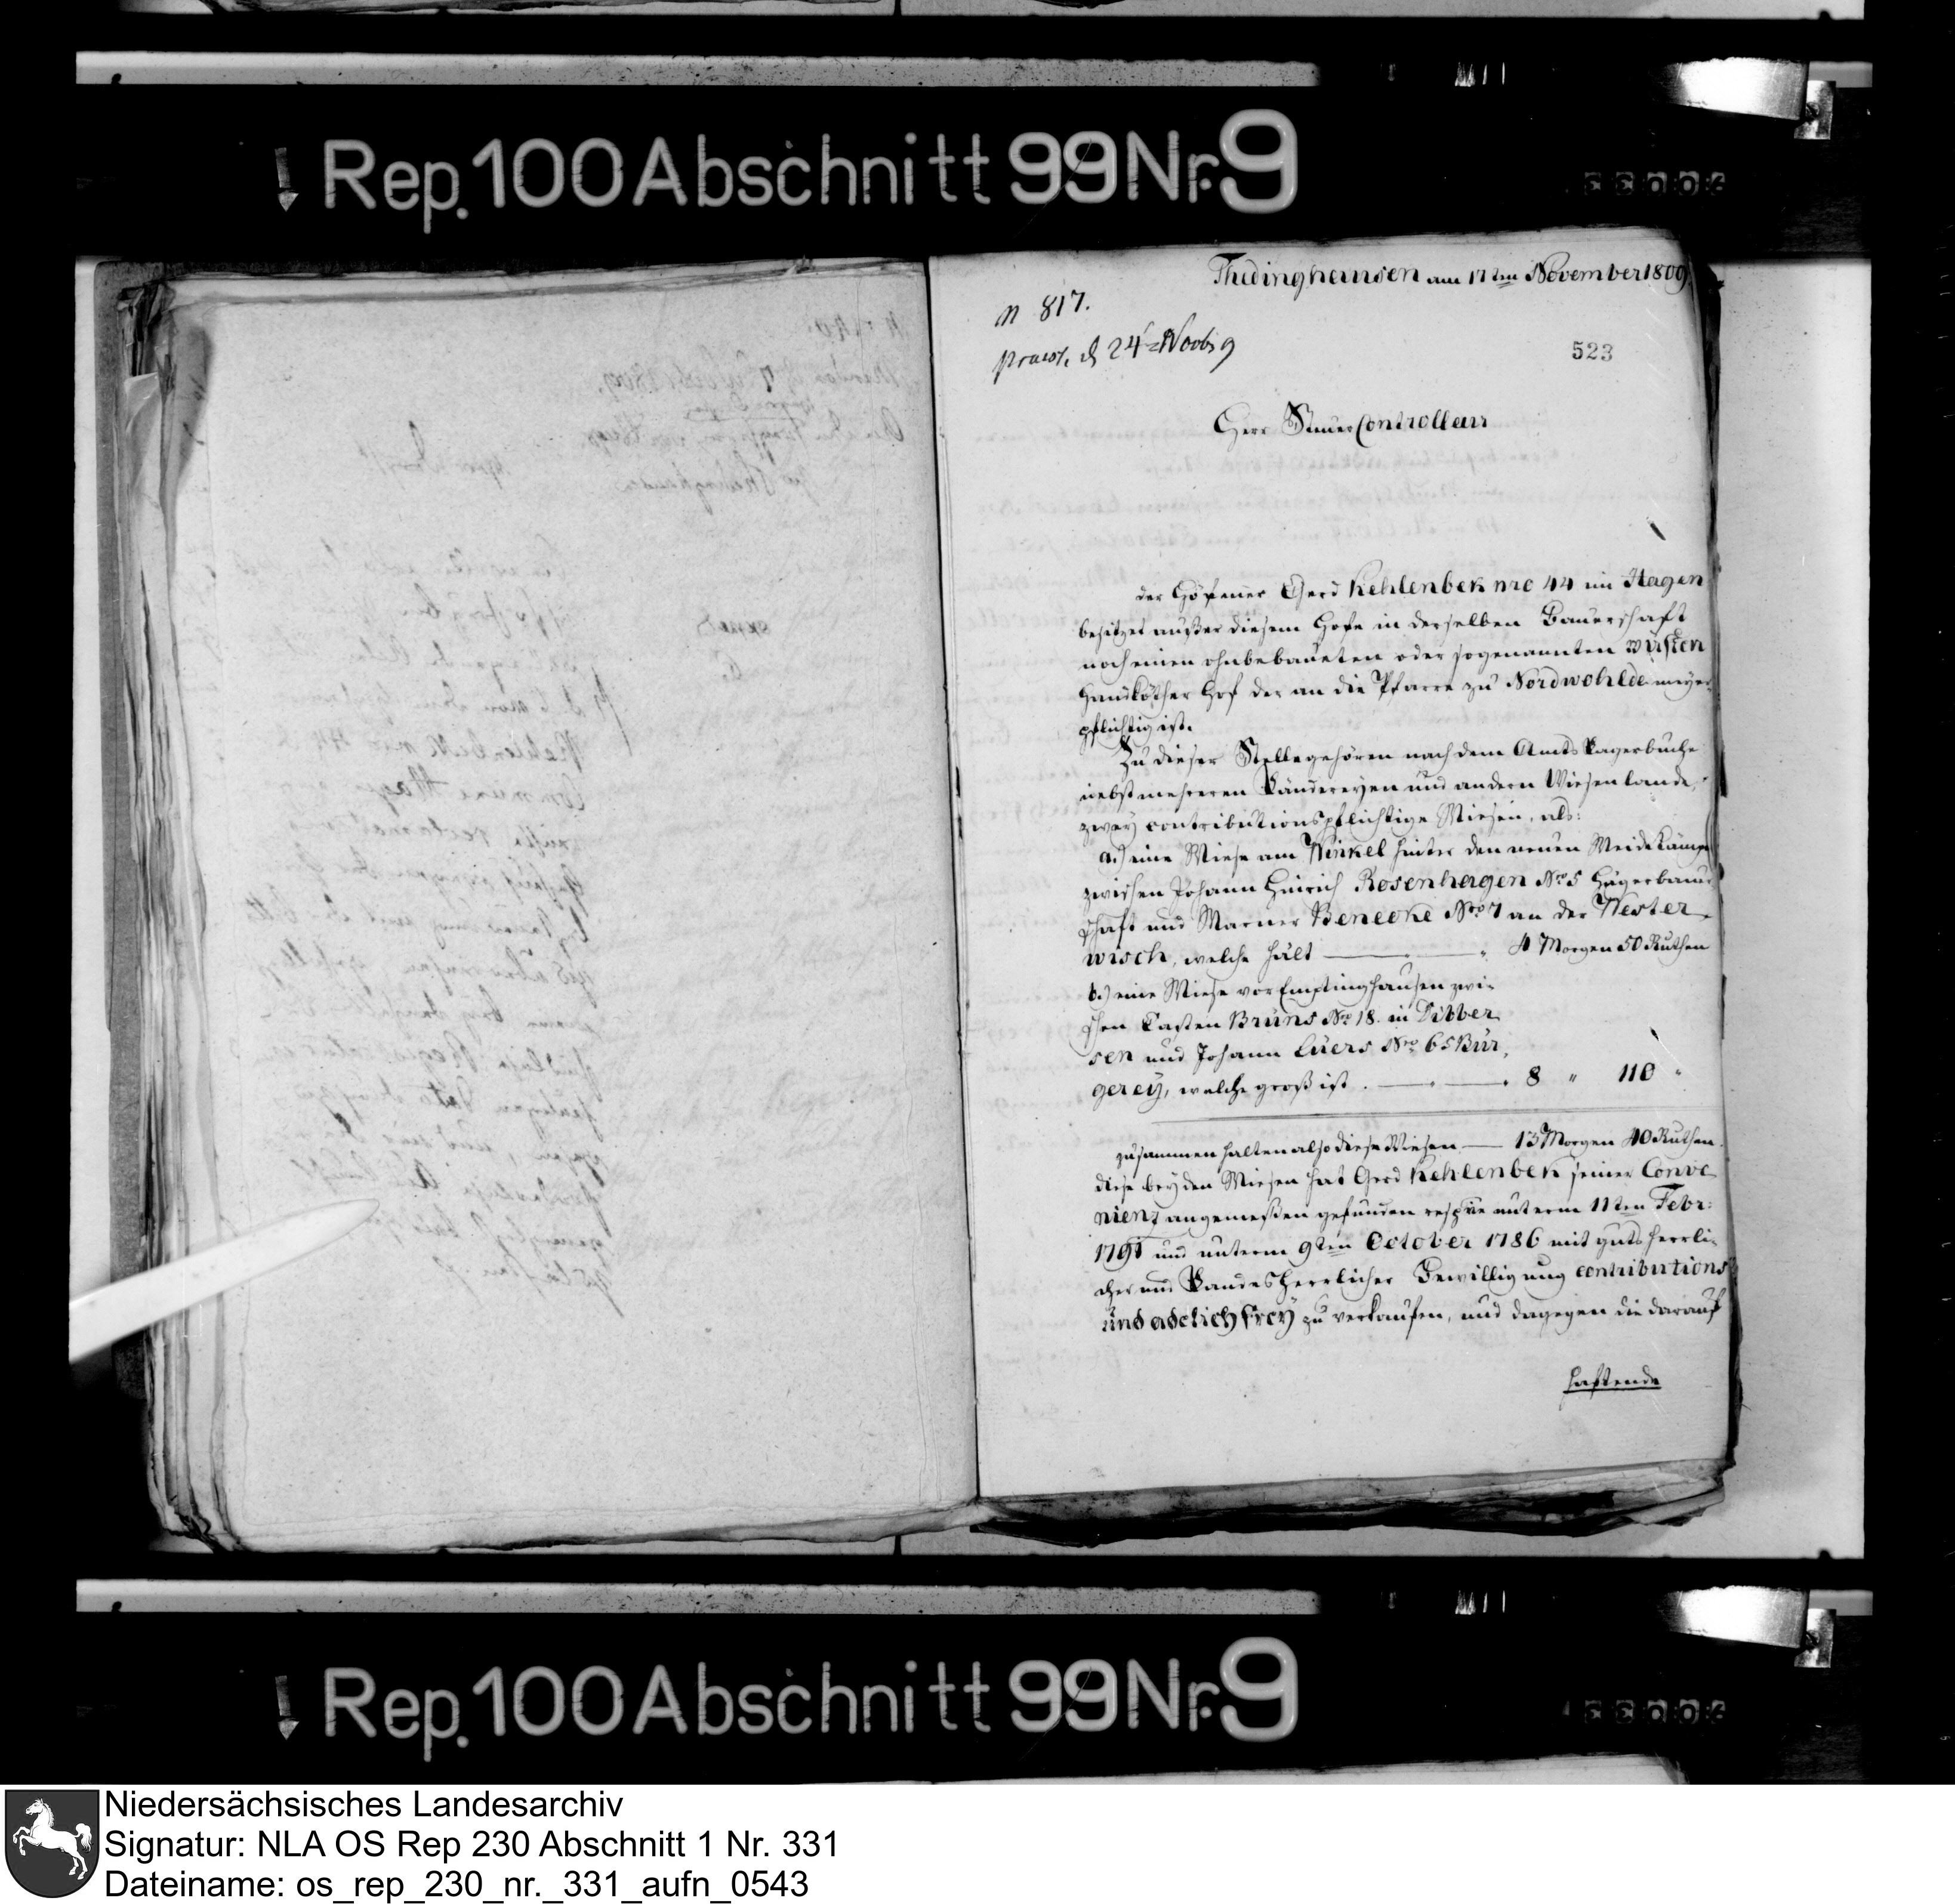 Rep. 100 Abschnitt 99 Nr. 9
Thedinghausen am 17ten November 1809
N 817.
praes. d 24t Novbr 9
523
Herr Steuer Controlleur
der Höfener Gerd Kehlenbek nro 44 im Hagen
besitzet außer diesem Hofe in derselben Bauerschaft
noch einen ohnbebaueten oder sogenannten wüsten
Handköther Hof der an die Pfarre zu Nordwohlde meyer-
pflichtig ist.
Zu dieser Stelle gehören nach dem Amts Lagerbuche
nebst mehreren Ländereyen und andern Wiesenlande,
zwey contributionspflichtige Wiesen, als:
a.) eine Wiese am Winkel hinter den neuen Weide Kämpen
zwischen Johann Hinrich Rosenhagen Nro 5 Hägerbauer
schaft und Warner Benecke Nro 7 an der Wester
wisch, welche hält — 4 Morgen 50 Ruthen
b.) eine Wiese vor Emptinghausen zwi-
schen Carsten Brüns Nro 18. in Dibber
sen und Johann Lüers Nro 65 Bür,
gerey, welche groß ist . — 8 " 110 "
zusammen halten also diese Wiesen — 13 Morgen 40 Ruthen.
diese beyden Wiesen hat Gerd Kehlenbek seiner Conve
nienz angemeßen gefunden respve unterm 11ten Febr:
1791 und unterm 9ten October 1786 mit gutsherrli-
cher und Landesherrlicher Bewilligung contributions
und adelich frey zu verkaufen, und dagegen die darauf
haftende
Rep. 100 Abschnitt 99 Nr. 9
Niedersächsisches Landesarchiv
Signatur: NLA OS Rep 230 Abschnitt 1 Nr. 331
Dateiname: os_rep_230_nr._331_aufn_0543